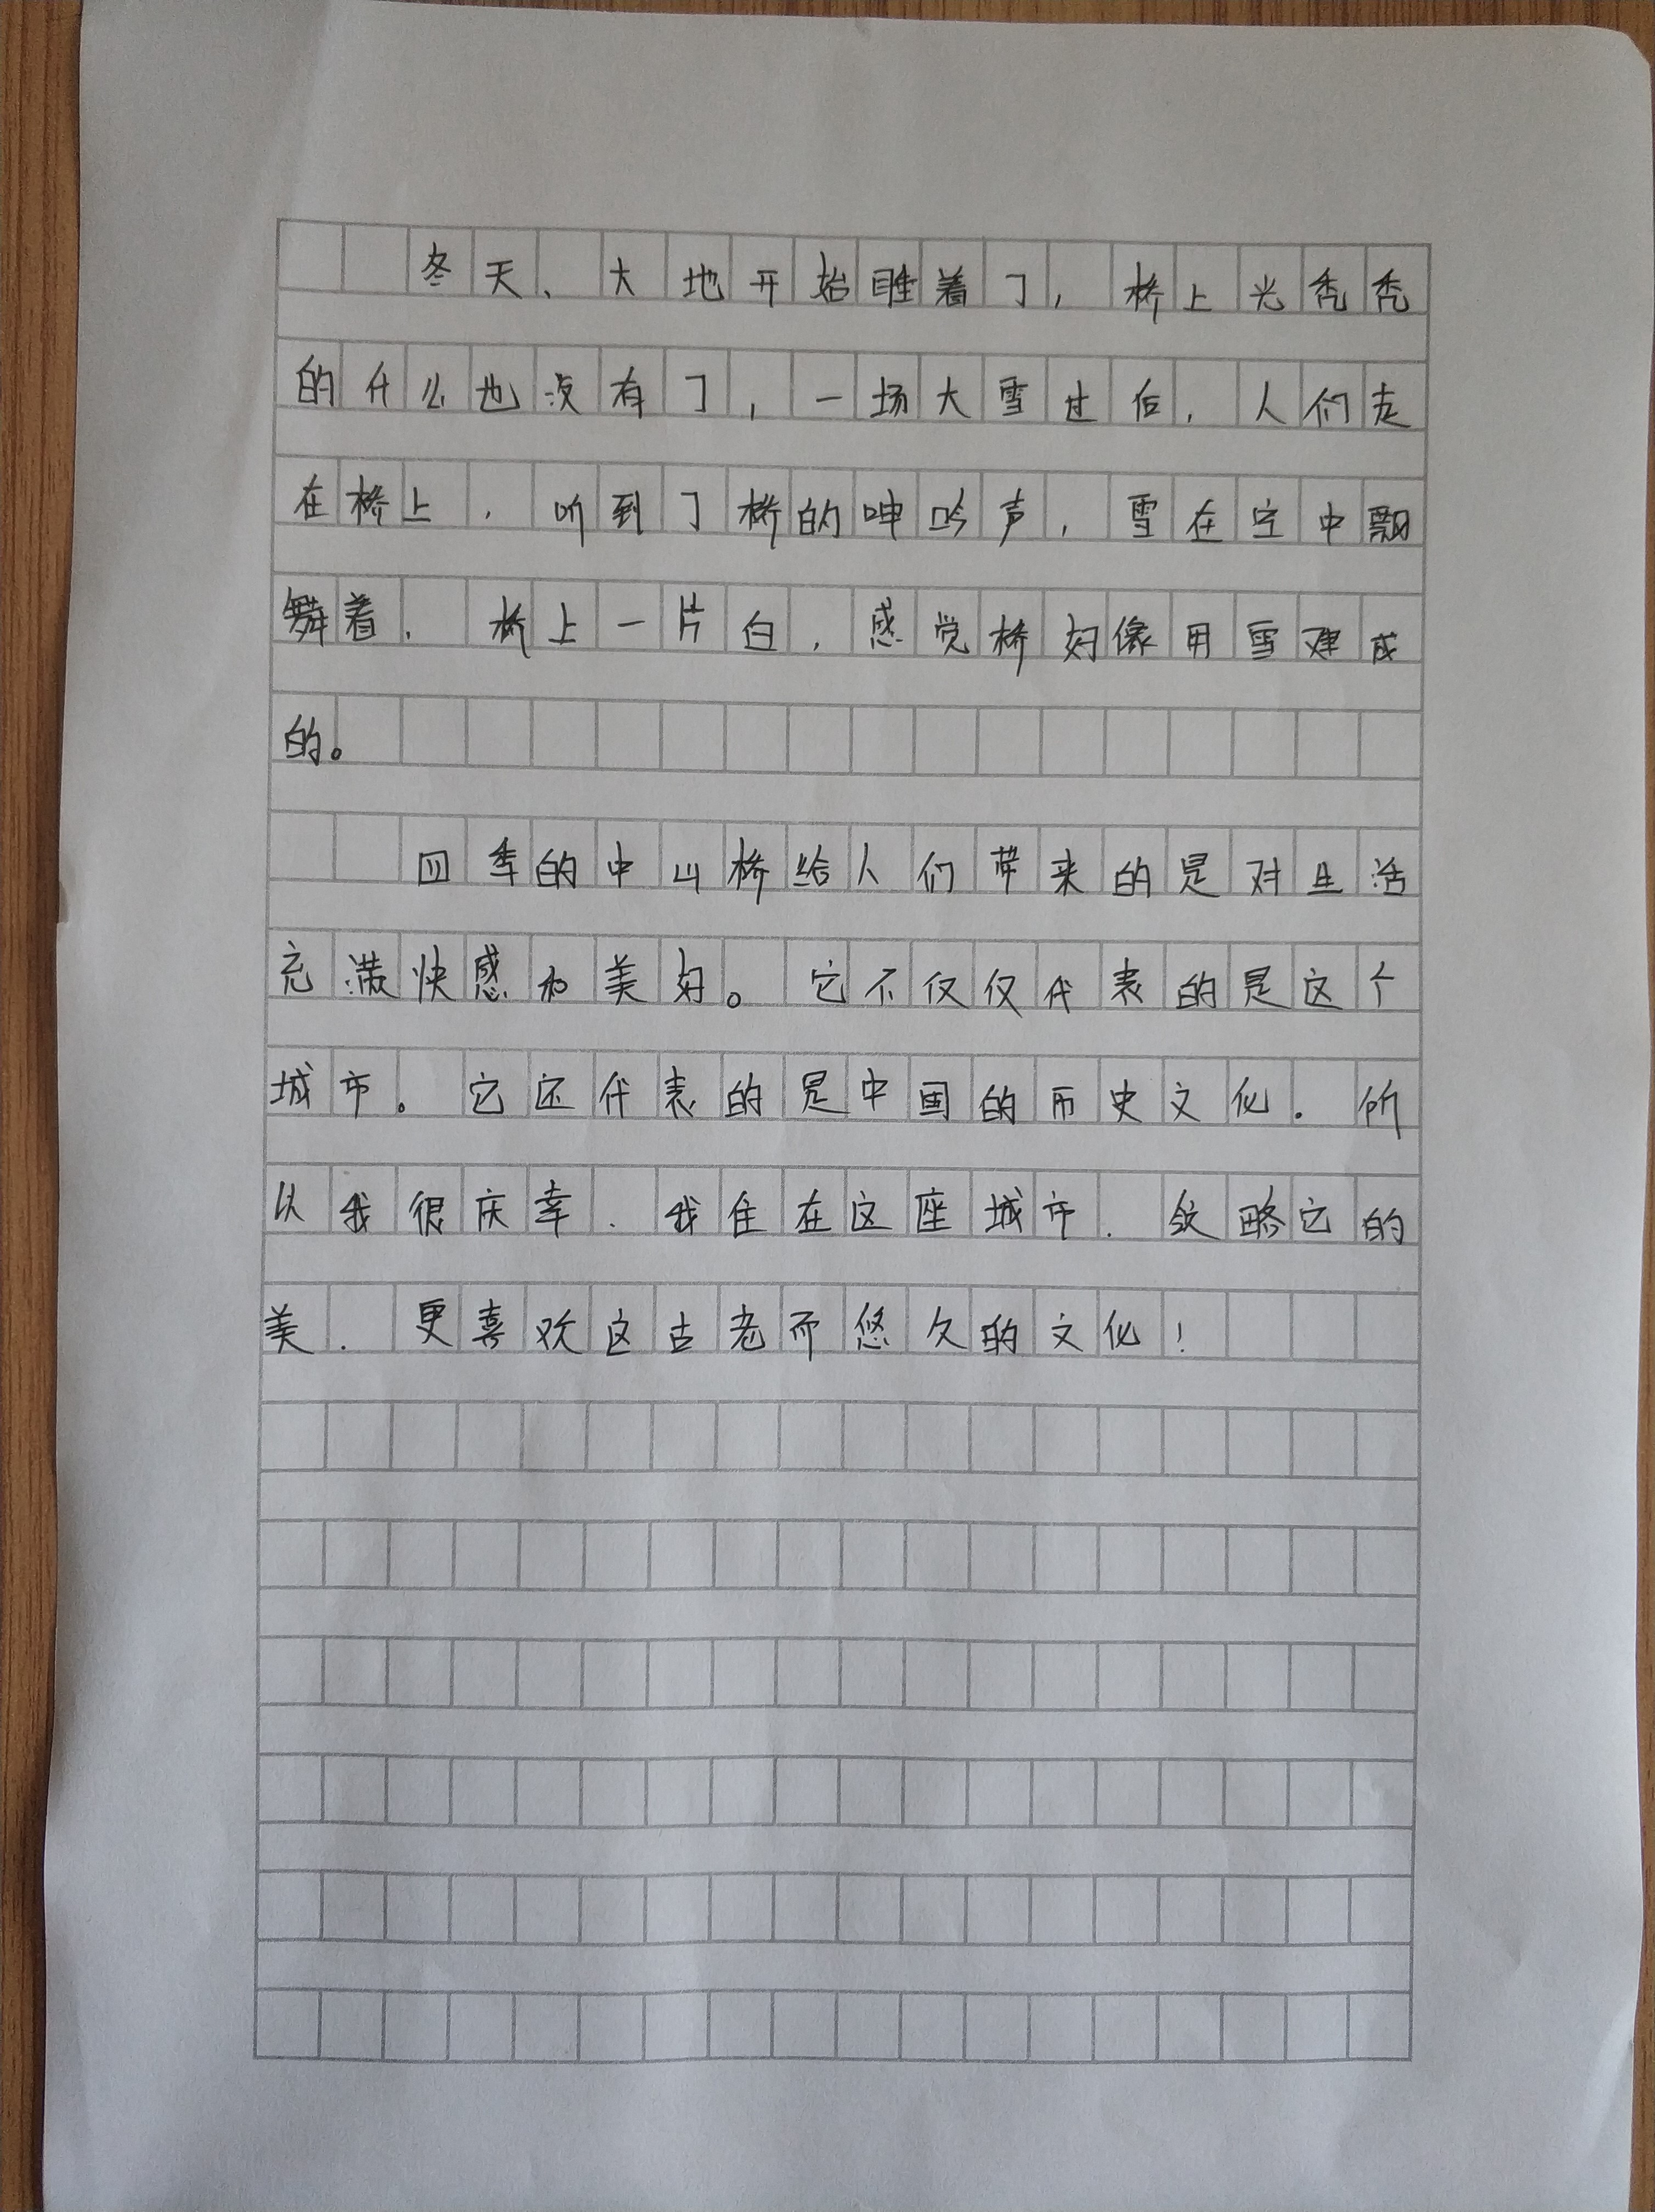 冬天、大地开始睡着了，桥上光秃秃
的什么也没有了，一场大雪过后，人们走
在桥上，听到了桥的呻吟声，雪在空中飘
舞着，桥上一片白，感觉桥好像用雪建成
的。
四季的中山桥给人们带来的是对生活
充满快感和美好。它不仅仅代表的是这个
城市。它还代表的是中国的历史文化．所
以我很庆幸．我住在这座城市．领略它的
美．更喜欢这古老而悠久的文化！